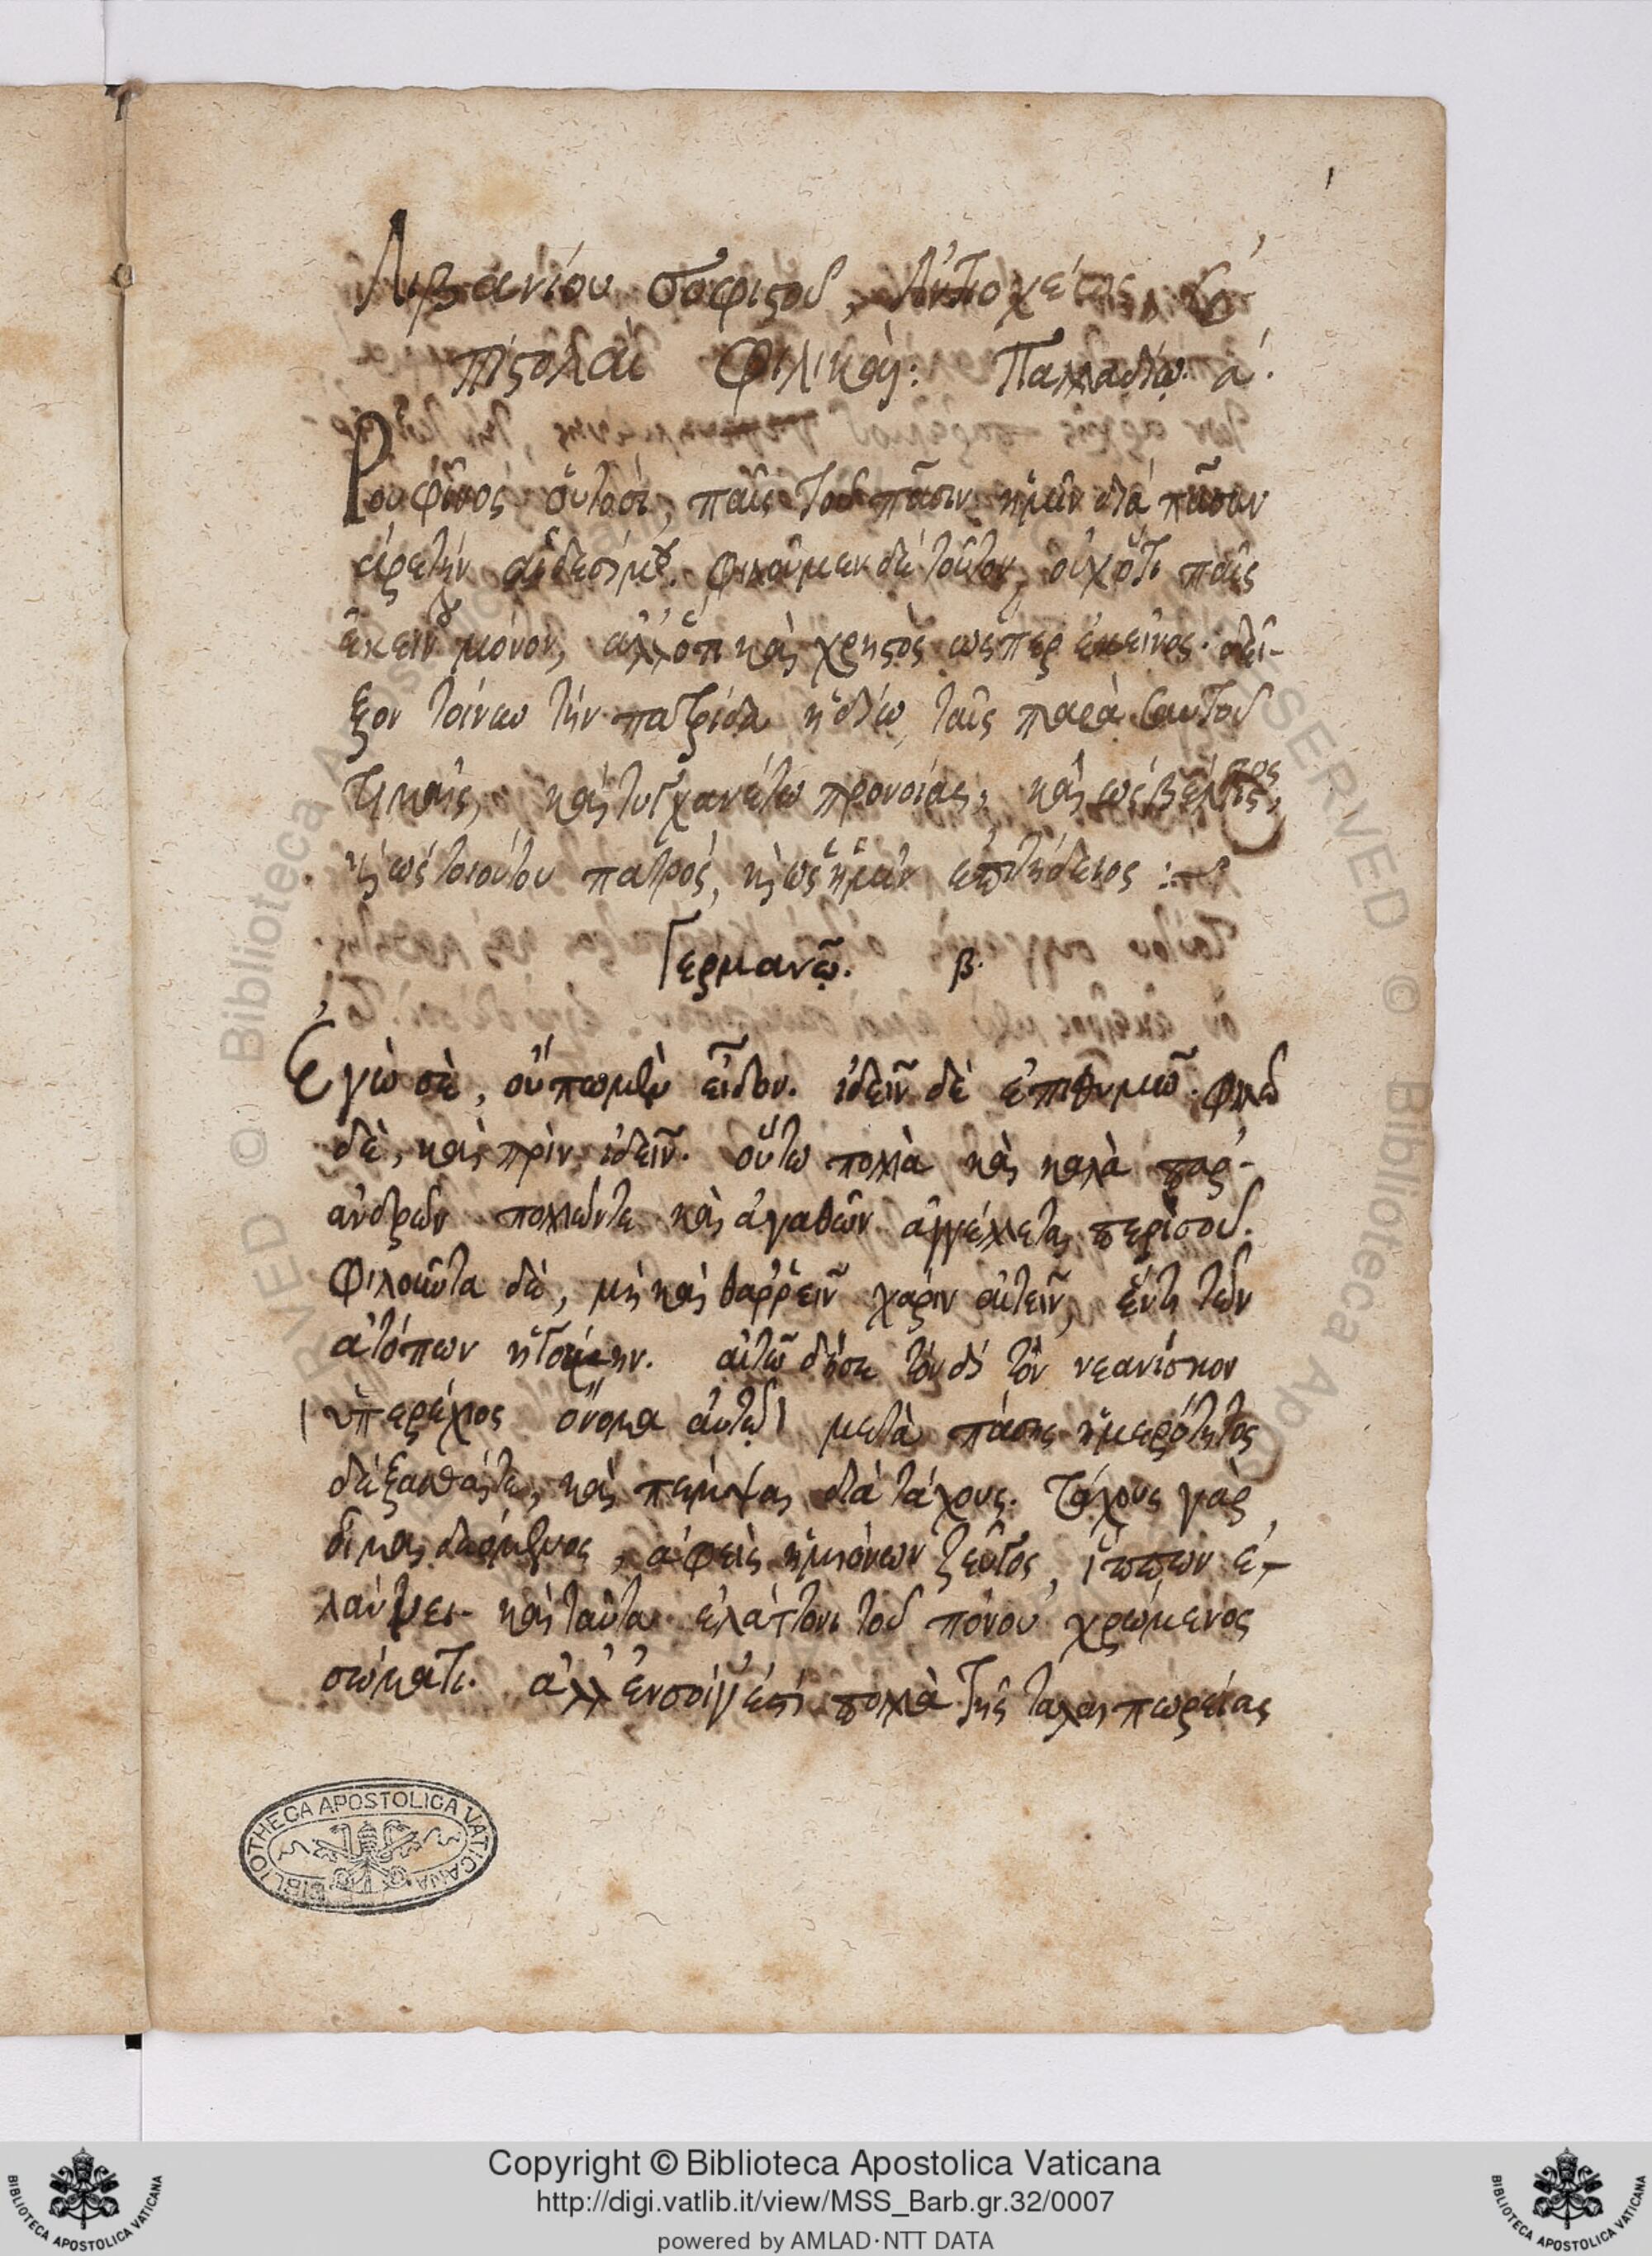 Λιβανίου σοφιστοῦ, Ἀντιοχέως ἐ
πιστολαὶ φιλικαὶ: Παλλαδίῳ. α΄.
Ρουφῖνος οὑτοσὶ, παῖς τοῦ πᾶσιν ἡμῖν διὰ πᾶσαν
ἀρετὴν αἰδεσίμου. φιλοῦμεν δὲ τοῦτον, οὐχ ὅτι παῖς
ἐκείνου μόνον, ἀλλ' ὅτι καὶ χρηστὸς ὥσπερ ἐκεῖνος. δεῖ-
ξον τοίνυν τὴν πατρίδα ἡδίω ταῖς παρὰ σαυτοῦ
τιμαῖς, καὶ τυγχανέτω προνοίας, καὶ ὡς βέλτιστος,
καὶ ὡς τοιούτου πατρός, καὶ ὡς ἡμῖν ἐπιτήδειος :
Γερμανῷ. β.
Ἐγώ σε, οὔπω μὲν εἶδον. ἰδεῖν δὲ ἐπιθυμῶ. φιλῶ
δὲ, καὶ πρὶν ἰδεῖν. οὕτω πολλὰ καὶ καλὰ παρ'
ἀνδρῶν πολλῶν τε καὶ ἀγαθῶν ἀγγέλλεται περὶ σοῦ.
Φιλοῦντα δὲ, μὴ καὶ θαρρεῖν χάριν αἰτεῖν, ἕν τι τῶν
ἀτόπων ἡγούμην. αἰτῶ δή σε τόνδε τὸν νεανίσκον
ὑπερέχιος ὄνομα αὐτῷ μετὰ πάσης ἡμερότητος
δέξασθαί τε, καὶ πέμψαι διὰ τάχους. τάχους γὰρ
δεόμενος, ἀφεὶς ἡμιόνων ζεῦγος, ἵππων ἐ-
καὶ ταῦτα ἐλάττονι τοῦ πόνου χρώμενος
σώματι. ἀλλ' ἐν σοί γ' ἐστὶ πολλὰ τῆς ταλαιπωρείας
BIBLIOTHECA APOSTOLICA VATICANA
Copyright © Biblioteca Apostolica Vaticana
http://digi.vatlib.it/view/MSS_Barb.gr.32/0007
powered by AMLAD·NTT DATA